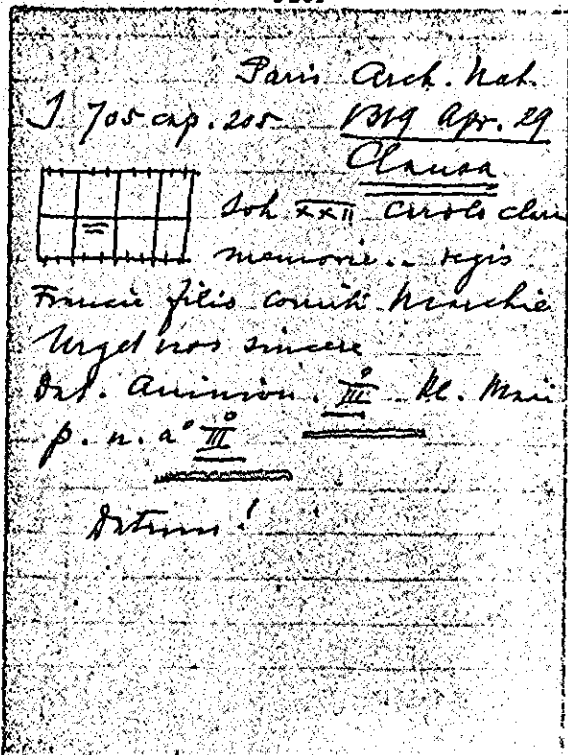 Paris Arch. Nat.
J 705 cap. 205 1319 Apr. 29
Clausa
Joh XXII Carolo clare
memorie .. regis
Francie filio comiti Marchie
Urget nos sincere
Dat. Avinion. III° Kl. Maii
p. n. a° III°
Datum!